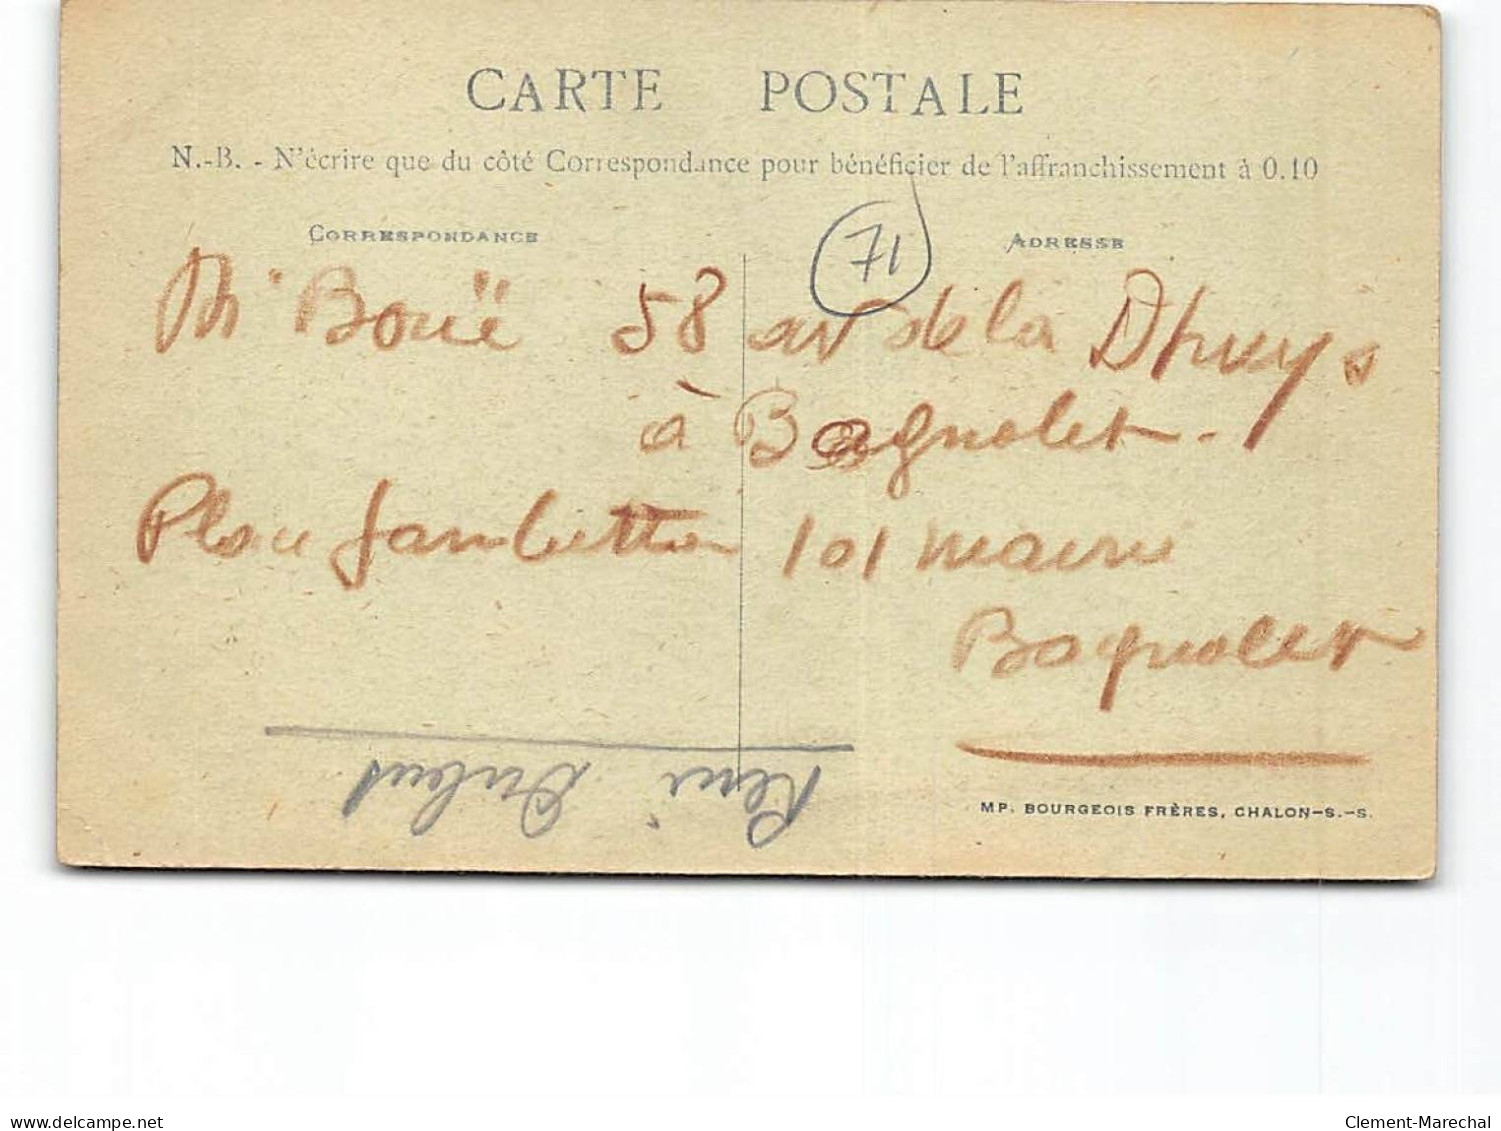 CARTE POSTALE
N.-B. - N'écrire que du côté Correspondance pour bénéficier de l'affranchissement à 0.10
CORRESPONDANCE
ADRESSE
71
Mr Bouë 58 av de la Dhuys
à Bagnolet.
Place Gambetta 101 mairie
Bagnolet
René
MP. BOURGEOIS FRÈRES, CHALON-S.-S.
delcampe.net
Clement-Marechal